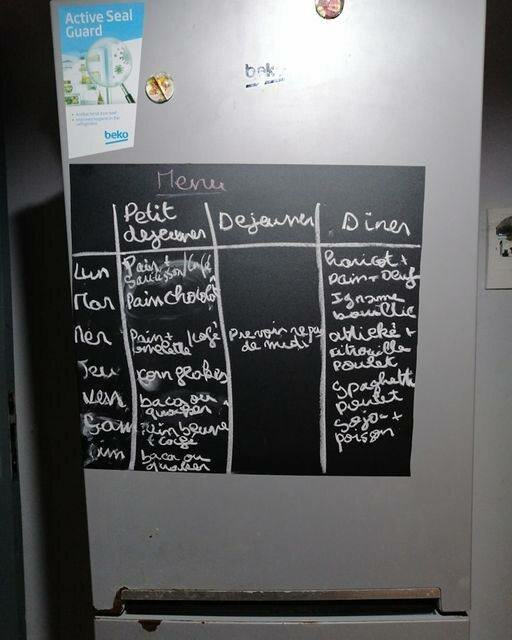 Active Seal
Guard
beko
beko
Menu
Petit
dejeuner
Dejeuner
Diner
Lun
Pain +
saucisson/café
haricot +
pain + oeuf
Mar
Pain chocolat
Igname
bouillie
Mer
Pain + /café
omelette
Prevoir repas
de midi
attiéké +
citrouille
poulet
Jeu
corn flakes
Spaghetti
poulet
Ven
baca ou
quaker
Soja +
poison
Sam
pain beurre
+ café
Dim
baca ou
quaker